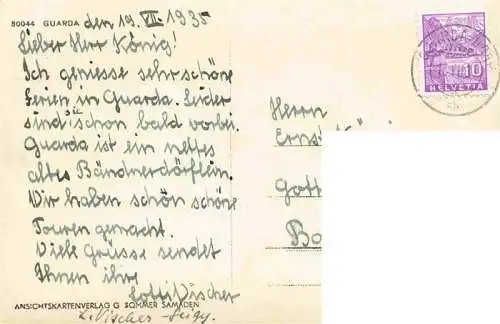 80044 GUARDA den 19. VII. 1935
Lieber Herr König!
Ich geniesse sehr schöne
Ferien in Guarda. Leider
sind sie schon bald vorbei.
Guarda ist ein nettes
altes Bündnerdörflein.
Wir haben schön schöne
Touren gemacht.
Viele Grüsse sendet
Ihnen ihre
Lotti Vischer
ANSICHTSKARTENVERLAG G. SOMMER SAMADEN
L. Vischer-Geigy.
Herrn
Ernst
Gott
Ba
10
HELVETIA